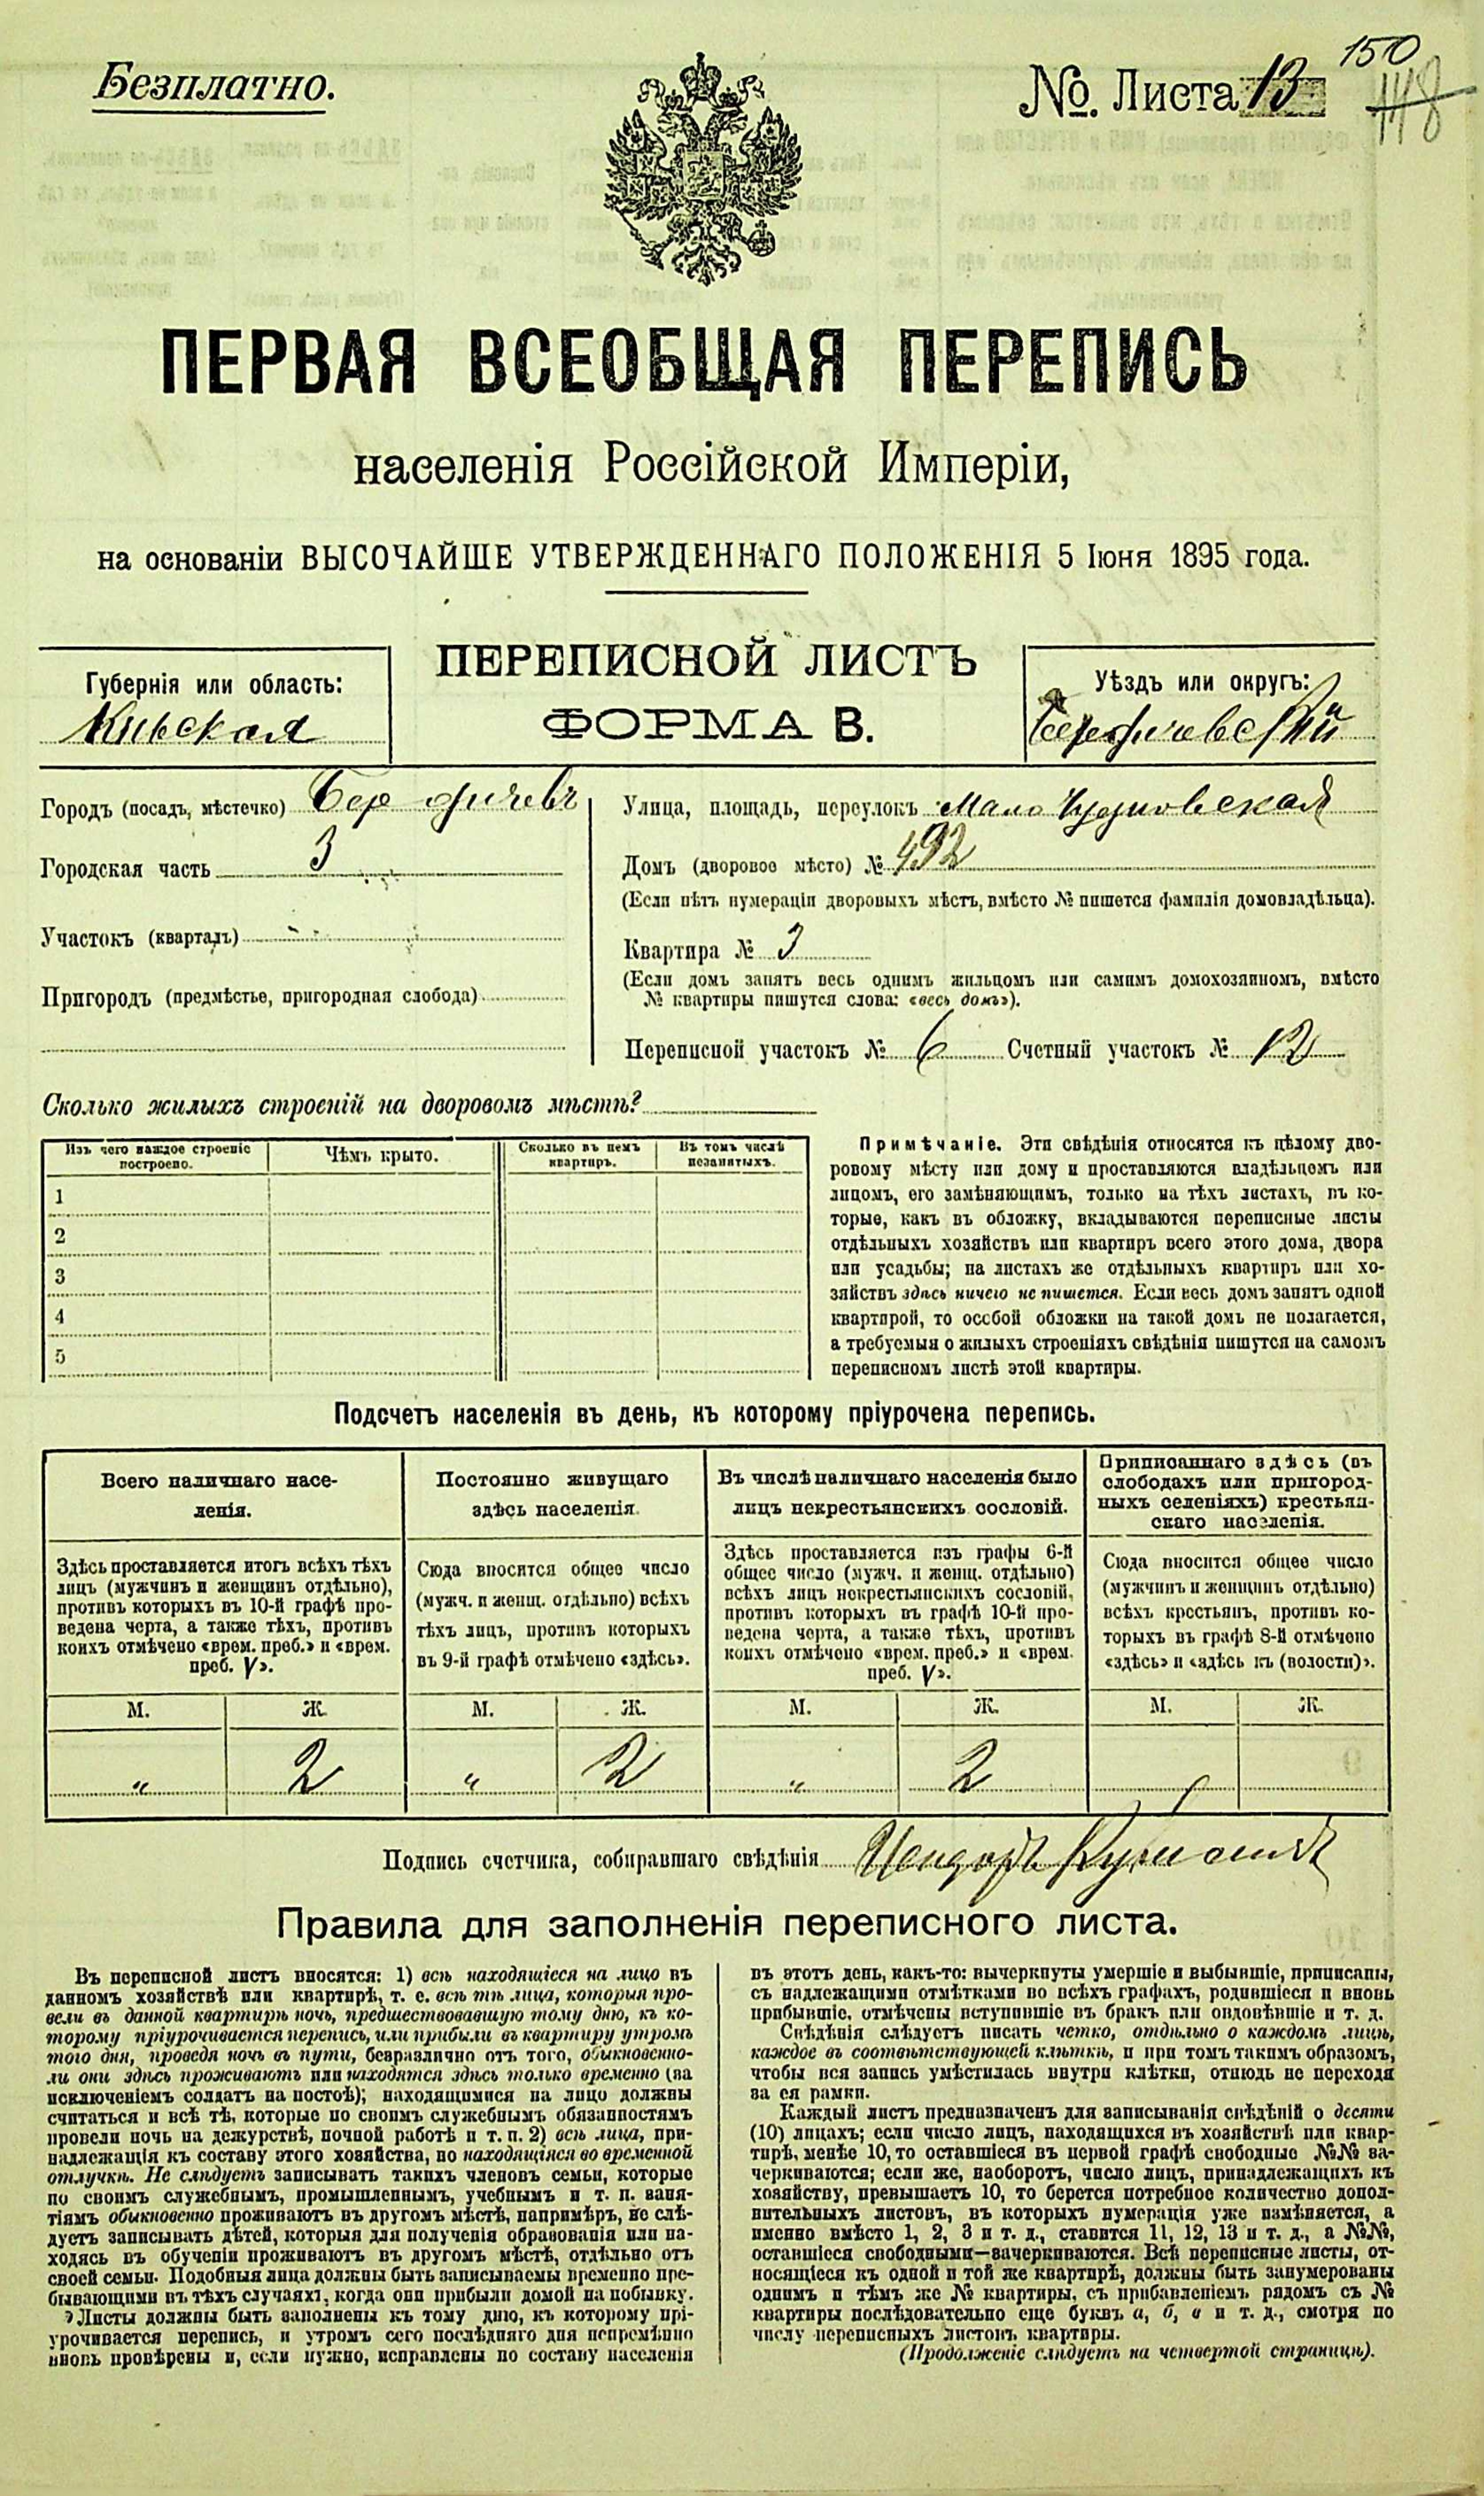 Безплатно.
№. Листа 13
150
148
ПЕРВАЯ ВСЕОБЩАЯ ПЕРЕПИСЬ
населенія Россійской Имперіи,
на основаніи ВЫСОЧАЙШЕ УТВЕРЖДЕННАГО ПОЛОЖЕНІЯ 5 Іюня 1895 года.
Губернія или область:
Кіевская
ПЕРЕПИСНОЙ ЛИСТЪ
ФОРМА В.
Уѣздъ или округъ:
Бердичевскій
Городъ (посадъ, мѣстечко) Бердичевъ
Городская часть 3
Участокъ (кварталъ)
Пригородъ (предмѣстье, пригородная слобода)
Улица, площадь, переулокъ Мало Чудновская
Домъ (дворовое мѣсто) № 492
(Если нѣтъ нумераціи дворовыхъ мѣстъ, вмѣсто № пишется фамилія домовладѣльца).
Квартира № 3
(Если домъ занятъ весь однимъ жильцомъ или самимъ домохозяиномъ, вмѣсто
№ квартиры пишутся слова: «весь домъ»).
Переписной участокъ № 6 Счетный участокъ № 12
Сколько жилыхъ строеній на дворовомъ мѣстѣ?
Изъ чего каждое строеніе
построено.
Чѣмъ крыто.
Сколько въ немъ
квартиръ.
Въ томъ числѣ
незанятыхъ.
1
2
3
4
5
Примѣчаніе. Эти свѣдѣнія относятся къ цѣлому дво-
ровому мѣсту или дому и проставляются владѣльцемъ или
лицомъ, его замѣняющимъ, только на тѣхъ листахъ, въ ко-
торые, какъ въ обложку, вкладываются переписные листы
отдѣльныхъ хозяйствъ или квартиръ всего этого дома, двора
или усадьбы; на листахъ же отдѣльныхъ квартиръ или хо-
зяйствъ здѣсь ничего не пишется. Если весь домъ занятъ одной
квартирой, то особой обложки на такой домъ не полагается,
а требуемыя о жилыхъ строеніяхъ свѣдѣнія пишутся на самомъ
переписномъ листѣ этой квартиры.
Подсчетъ населенія въ день, къ которому пріурочена перепись.
Всего наличнаго насе-
ленія.
Здѣсь проставляется итогъ всѣхъ тѣхъ
лицъ (мужчинъ и женщинъ отдѣльно),
противъ которыхъ въ 10-й графѣ про-
ведена черта, а также тѣхъ, противъ
коихъ отмѣчено «врем. преб.» и «врем.
преб. V».
Постоянно живущаго
здѣсь населенія.
Сюда вносится общее число
(мужч. и женщ. отдѣльно) всѣхъ
тѣхъ лицъ, противъ которыхъ
въ 9-й графѣ отмѣчено «здѣсь».
Въ числѣ наличнаго населенія было
лицъ некрестьянскихъ сословій.
Здѣсь проставляется изъ графы 6-й
общее число (мужч. и женщ. отдѣльно)
всѣхъ лицъ некрестьянскихъ сословій,
противъ которыхъ въ графѣ 10-й про-
ведена черта, а также тѣхъ, противъ
коихъ отмѣчено «врем. преб.» и «врем.
преб. V».
Приписаннаго здѣсь (въ
слободахъ или пригород-
ныхъ селеніяхъ) крестьян-
скаго населенія.
Сюда вносится общее число
(мужчинъ и женщинъ отдѣльно)
всѣхъ крестьянъ, противъ ко-
торыхъ въ графѣ 8-й отмѣчено
«здѣсь» и «здѣсь къ (волости)».
М. Ж. М. Ж. М. Ж. М. Ж.
„ 2 „ 2 „ 2
Подпись счетчика, собиравшаго свѣдѣнія
Правила для заполненія переписного листа.
Въ переписной листъ вносятся: 1) всѣ находящіеся на лицо въ
данномъ хозяйствѣ или квартирѣ, т. е. всѣ тѣ лица, которыя про-
вели въ данной квартирѣ ночь, предшествовавшую тому дню, къ ко-
торому пріурочивается перепись, или прибыли въ квартиру утромъ
того дня, проведя ночь въ пути, безразлично отъ того, обыкновенно-
ли они здѣсь проживаютъ или находятся здѣсь только временно (за
исключеніемъ солдатъ на постоѣ); находящимися на лицо должны
считаться и всѣ тѣ, которые по своимъ служебнымъ обязанностямъ
провели ночь на дежурствѣ, ночной работѣ и т. п. 2) всѣ лица, при-
надлежащія къ составу этого хозяйства, но находящіяся во временной
отлучкѣ. Не слѣдуетъ записывать такихъ членовъ семьи, которые
по своимъ служебнымъ, промышленнымъ, учебнымъ и т. п. заня-
тіямъ обыкновенно проживаютъ въ другомъ мѣстѣ, напримѣръ, не слѣ-
дуетъ записывать дѣтей, которыя для полученія образованія или на-
ходясь въ обученіи проживаютъ въ другомъ мѣстѣ, отдѣльно отъ
своей семьи. Подобныя лица должны быть записываемы временно пре-
бывающими въ тѣхъ случаяхъ, когда они прибыли домой на побывку.
Листы должны быть заполнены къ тому дню, къ которому прі-
урочивается перепись, и утромъ сего послѣдняго дня непремѣнно
вновь провѣрены и, если нужно, исправлены по составу населенія
въ этотъ день, какъ-то: вычеркнуты умершіе и выбывшіе, приписаны,
съ надлежащими отмѣтками во всѣхъ графахъ, родившіеся и вновь
прибывшіе, отмѣчены вступившіе въ бракъ или овдовѣвшіе и т. д.
Свѣдѣнія слѣдуетъ писать четко, отдѣльно о каждомъ лицѣ,
каждое въ соотвѣтствующей клѣткѣ, и при томъ такимъ образомъ,
чтобы вся запись умѣстилась внутри клѣтки, отнюдь не переходя
за ея рамки.
Каждый листъ предназначенъ для записыванія свѣдѣній о десяти
(10) лицахъ; если число лицъ, находящихся въ хозяйствѣ или квар-
тирѣ, менѣе 10, то оставшіеся въ первой графѣ свободные №№ за-
черкиваются; если же, наоборотъ, число лицъ, принадлежащихъ къ
хозяйству, превышаетъ 10, то берется потребное количество допол-
нительныхъ листовъ, въ которыхъ нумерація уже измѣняется, а
именно вмѣсто 1, 2, 3 и т. д., ставится 11, 12, 13 и т. д., а №№,
оставшіеся свободными—зачеркиваются. Всѣ переписные листы, от-
носящіеся къ одной и той же квартирѣ, должны быть занумерованы
однимъ и тѣмъ же № квартиры, съ прибавленіемъ рядомъ съ №
квартиры послѣдовательно еще буквъ а, б, в и т. д., смотря по
числу переписныхъ листовъ квартиры.
(Продолженіе слѣдуетъ на четвертой страницѣ).